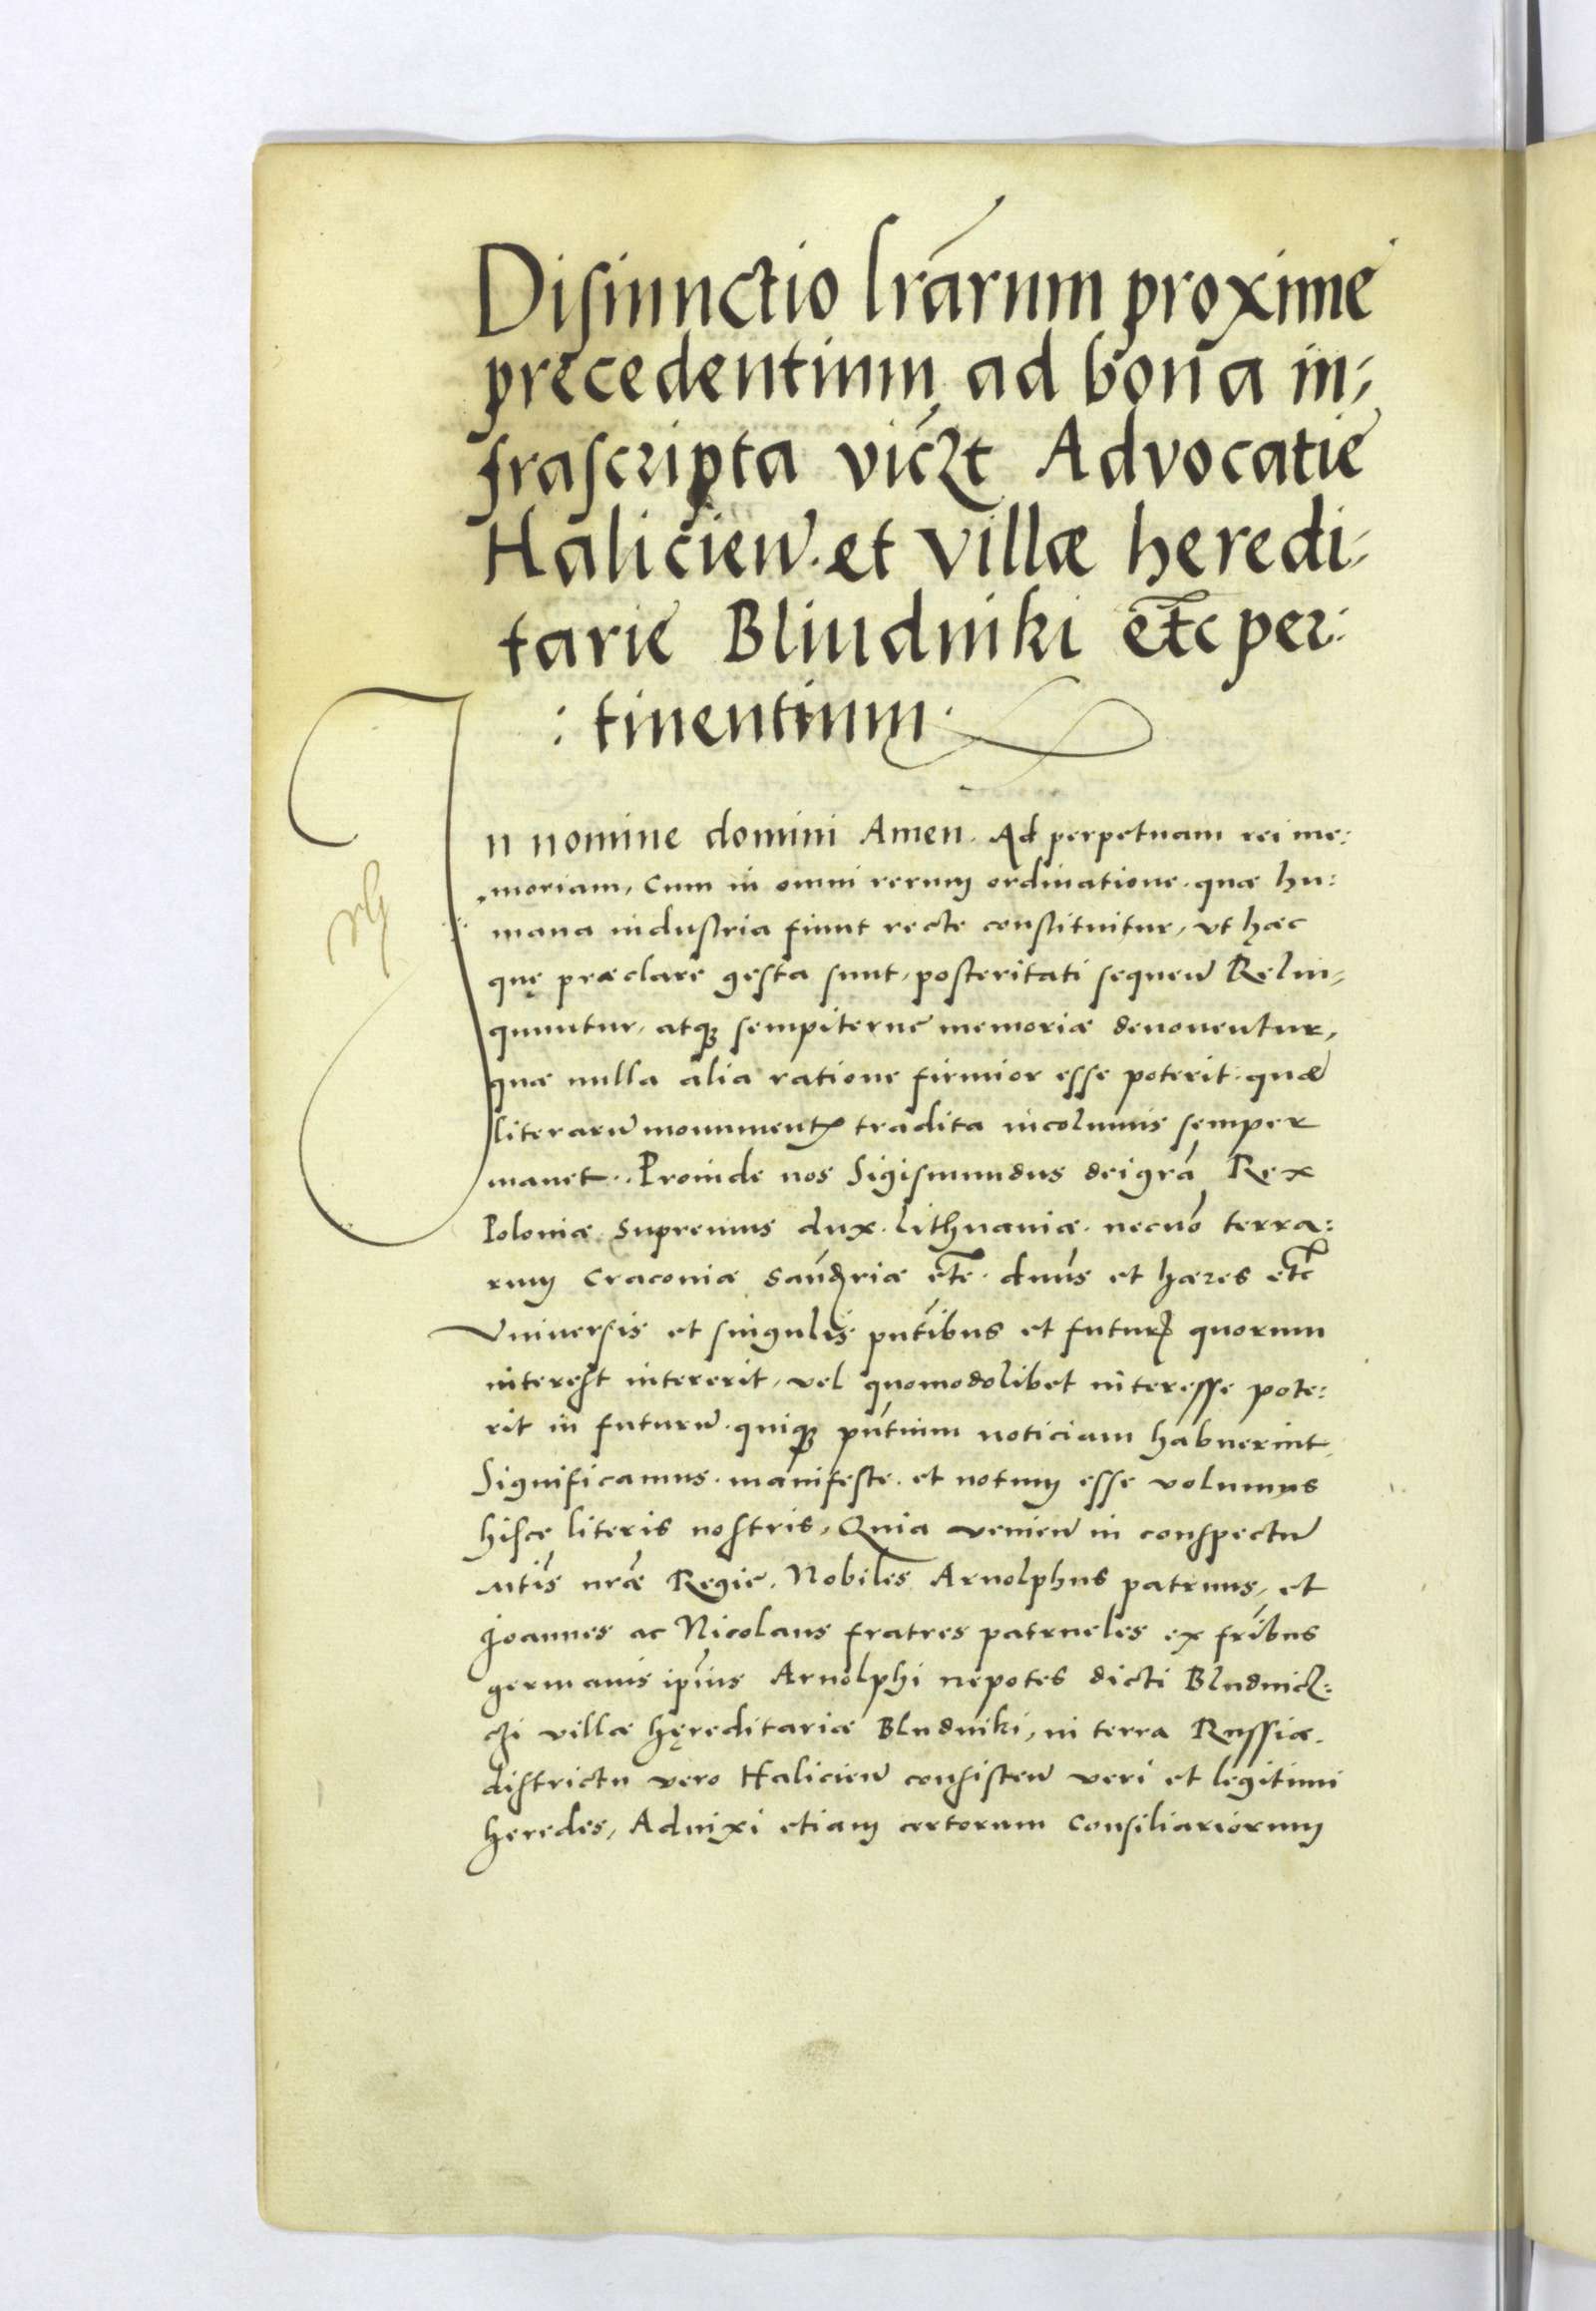 Disiunctio lrarum proxime
precedentium ad bona in-
frascripta viczt Advocatie
Halicień. et villæ heredi-
tarie Bliudniki etc per:
: tinentium.
In nomine domini Amen. Ad perpetuam rei me:
moriam, Cum in omni rerum ordinatione. quæ hu:
mana industria fiunt recte constituitur, ut hæc
quę præclare gesta sunt, posteritati sequeñ Relin-
quuntur, atq; sempiterne memoriæ devoventur,
quæ nulla alia ratione firmior esse poterit. quæ
literarū monumentis tradita incolumis semper
manet. Proinde nos Sigismundus dei gra Rex
Poloniæ supremus dux. Lithuaniæ. necnō terra:
rum Craconiæ Sandriæ etc. dnus et hæres etc
Universis et singulis pntibus et futuris quorum
interest intererit, vel quomodolibet interesse pote:
rit in futurū. quiq; pntium noticiam habuerint.
Significamus. manifeste. et notum esse volumus
hisce literis nostris, Quia venień in conspectū
Mtis nræ Regie. Nobiles Arnolphus patruus, et
Joannes ac Nicolaus fratres patrueles ex fribus
germanis ipius Arnolphi nepotes dicti Bludnicz-
czi villæ hęreditariæ Bludniki, in terra Russiæ.
districtu vero Halicień consisteñ veri et legitimi
heredes, Adnixi etiam certorum Consiliariorum